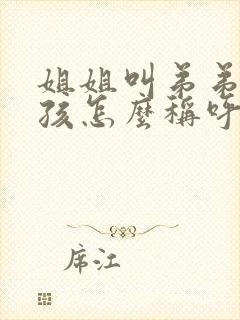 姐姐叫弟弟
孩怎麼稱呼
席江